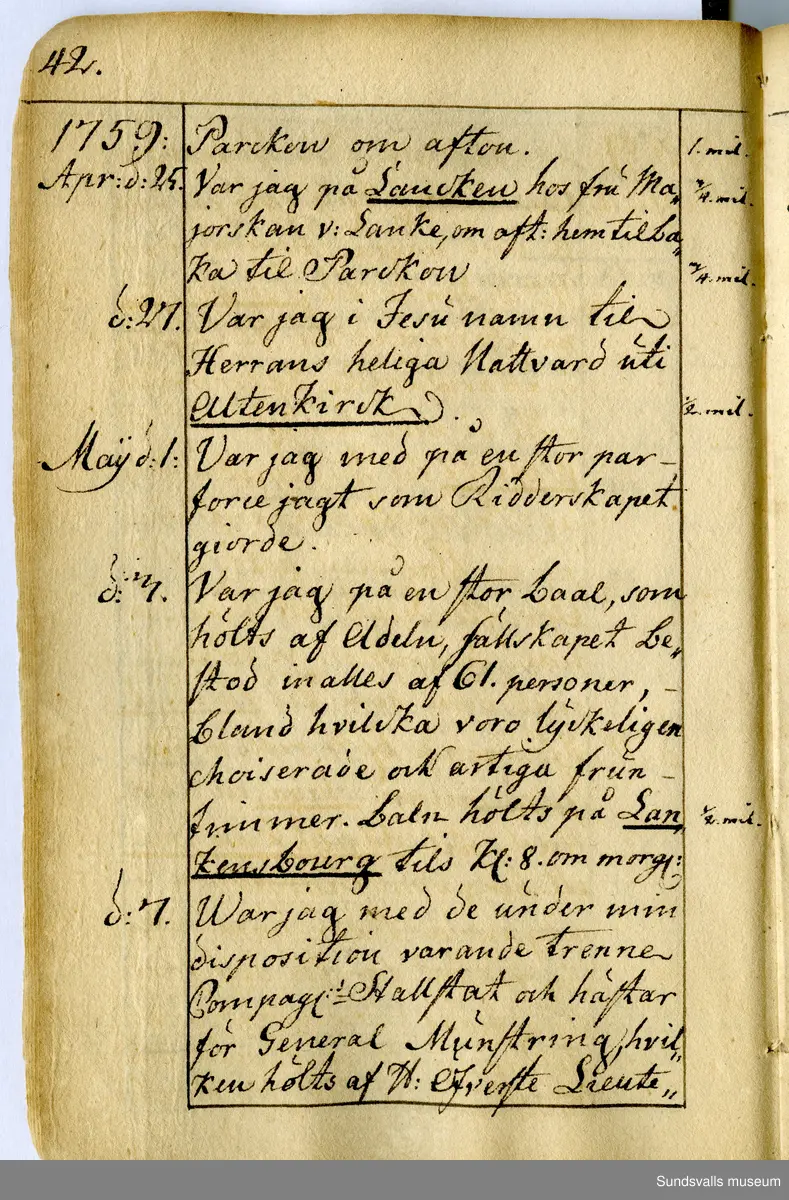 42.
1759: Parckow om afton. 1. mil.
Apr: d: 25. Var jag på Lancken hos fru Ma„ 3/4. mil.
jorskan v: Lanke, om aft: hem tilba„
ka til Parckow 3/4. mil.
d: 27. Var jag i Jesu namn til
Herrans heliga Nattvard uti
Altenkirck. 1/2. mil.
Maÿ d: 1: Var jag med på en stor par-
force jagt som Ridderskapet
giorde.
d: Var jag på en stor baal, som
hölts af Adeln, sällskapet be„
stod inalles af 61. personer, -
bland hvilcka voro lyckeligen
choiserade och artiga frun-
timmer. Baln hölts på Lan„ 1/2. mil.
kensbourg tils Kl: 8. om morg:
d: 7. War jag med de under min
disposition varande trenne
Compag: Stallstat och hästar
för General Münstring, hvil„
ken hölts af H: Öfverste Lieute„
Sundsvalls museum